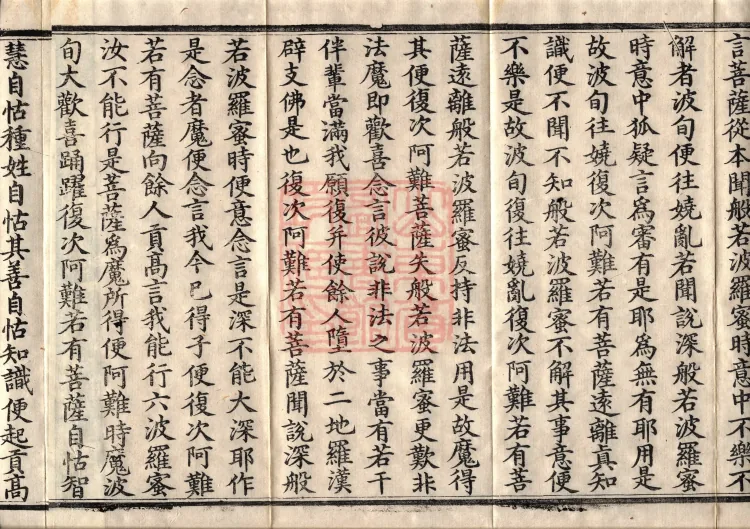 言菩薩從本聞般若波羅蜜時意中不樂不
解者波旬便往嬈亂若聞說深般若波羅蜜
時意中狐疑言為審有是耶為無有耶用是
故波旬往嬈復次阿難若有菩薩遠離真知
識便不聞不知般若波羅蜜不解其事意便
不樂是故波旬復往嬈亂復次阿難若有菩
薩遠離般若波羅蜜反持非法用是故魔得
其便復次阿難菩薩失般若波羅蜜更歎非
法魔即歡喜念言彼說非法之事當有若干
伴輩當滿我願復并使餘人墮於二地羅漢
辟支佛是也復次阿難若有菩薩聞說深般
若波羅蜜時便意念言是深不能大深耶作
是念者魔便念言我今已得子便復次阿難
若有菩薩向餘人貢高言我能行六波羅蜜
汝不能行是菩薩為魔所得便阿難時魔波
旬大歡喜踊躍復次阿難若有菩薩自怙智
慧自怙種姓自怙其善自怙知識便起貢高